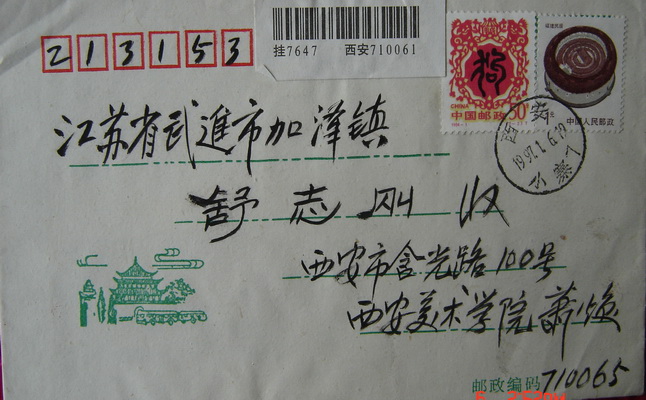 213153
挂7647 西安710061
中国邮政
50分
CHINA
福建民居
1元
中国人民邮政
西安
1997.1.6.19
江苏省武進市加泽镇
舒志刚 收
西安市含光路100号
西安美术学院 萧焕
邮政编码 710065